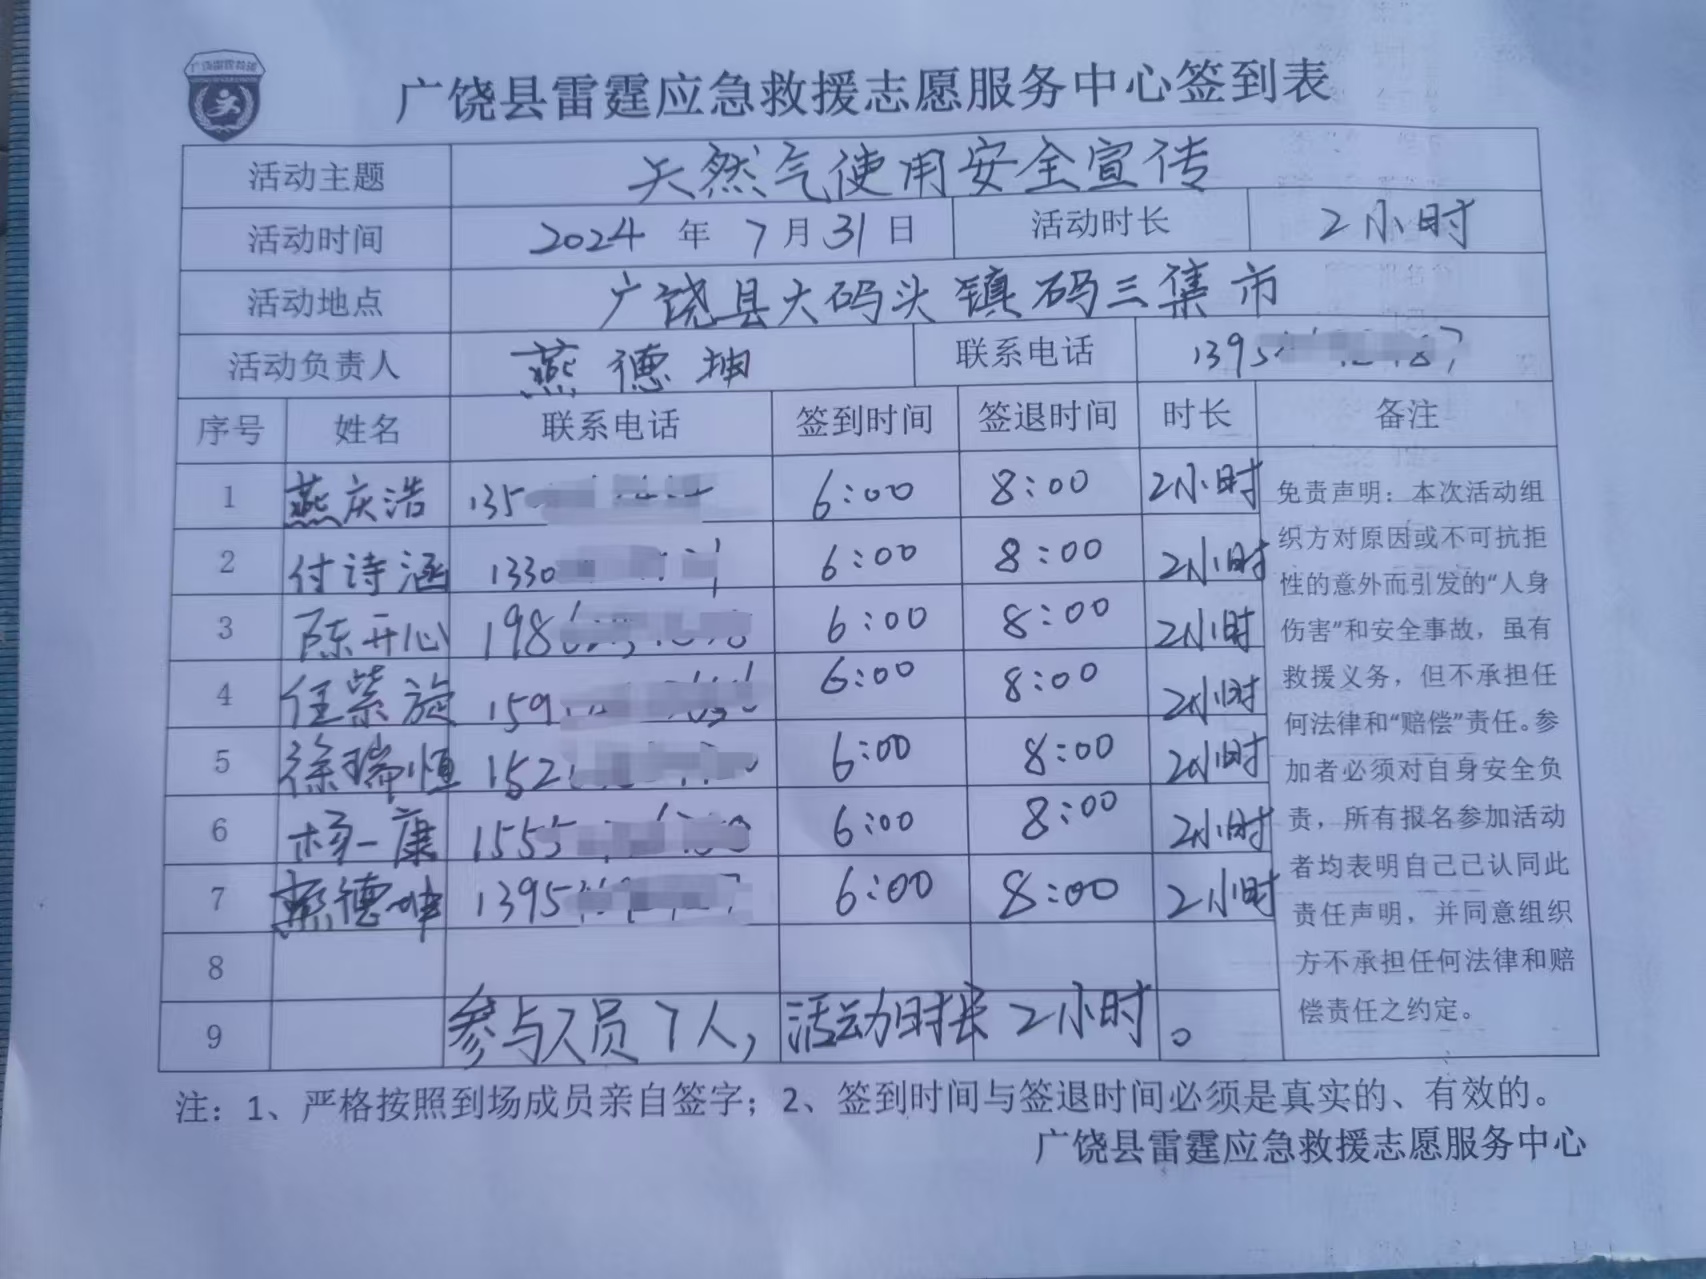 广饶雷霆救援
广饶县雷霆应急救援志愿服务中心签到表
活动主题 天然气使用安全宣传
活动时间 2024 年 7 月 31 日 活动时长 2小时
活动地点 广饶县大码头镇码三集市
活动负责人 燕德坤 联系电话 1395 87
序号 姓名 联系电话 签到时间 签退时间 时长 备注
1 燕庆浩 135 6:00 8:00 2小时
2 付诗涵 1330 6:00 8:00 2小时
3 陈开心 198 6:00 8:00 2小时
4 任紫旋 159 6:00 8:00 2小时
5 徐瑞恒 152 6:00 8:00 2小时
6 杨一康 1555 6:00 8:00 2小时
7 燕德坤 1395 6:00 8:00 2小时
8
9 参与人员7人，活动时长2小时。
免责声明：本次活动组
织方对原因或不可抗拒
性的意外而引发的“人身
伤害”和安全事故，虽有
救援义务，但不承担任
何法律和“赔偿”责任。参
加者必须对自身安全负
责，所有报名参加活动
者均表明自己已认同此
责任声明，并同意组织
方不承担任何法律和赔
偿责任之约定。
注：1、严格按照到场成员亲自签字；2、签到时间与签退时间必须是真实的、有效的。
广饶县雷霆应急救援志愿服务中心